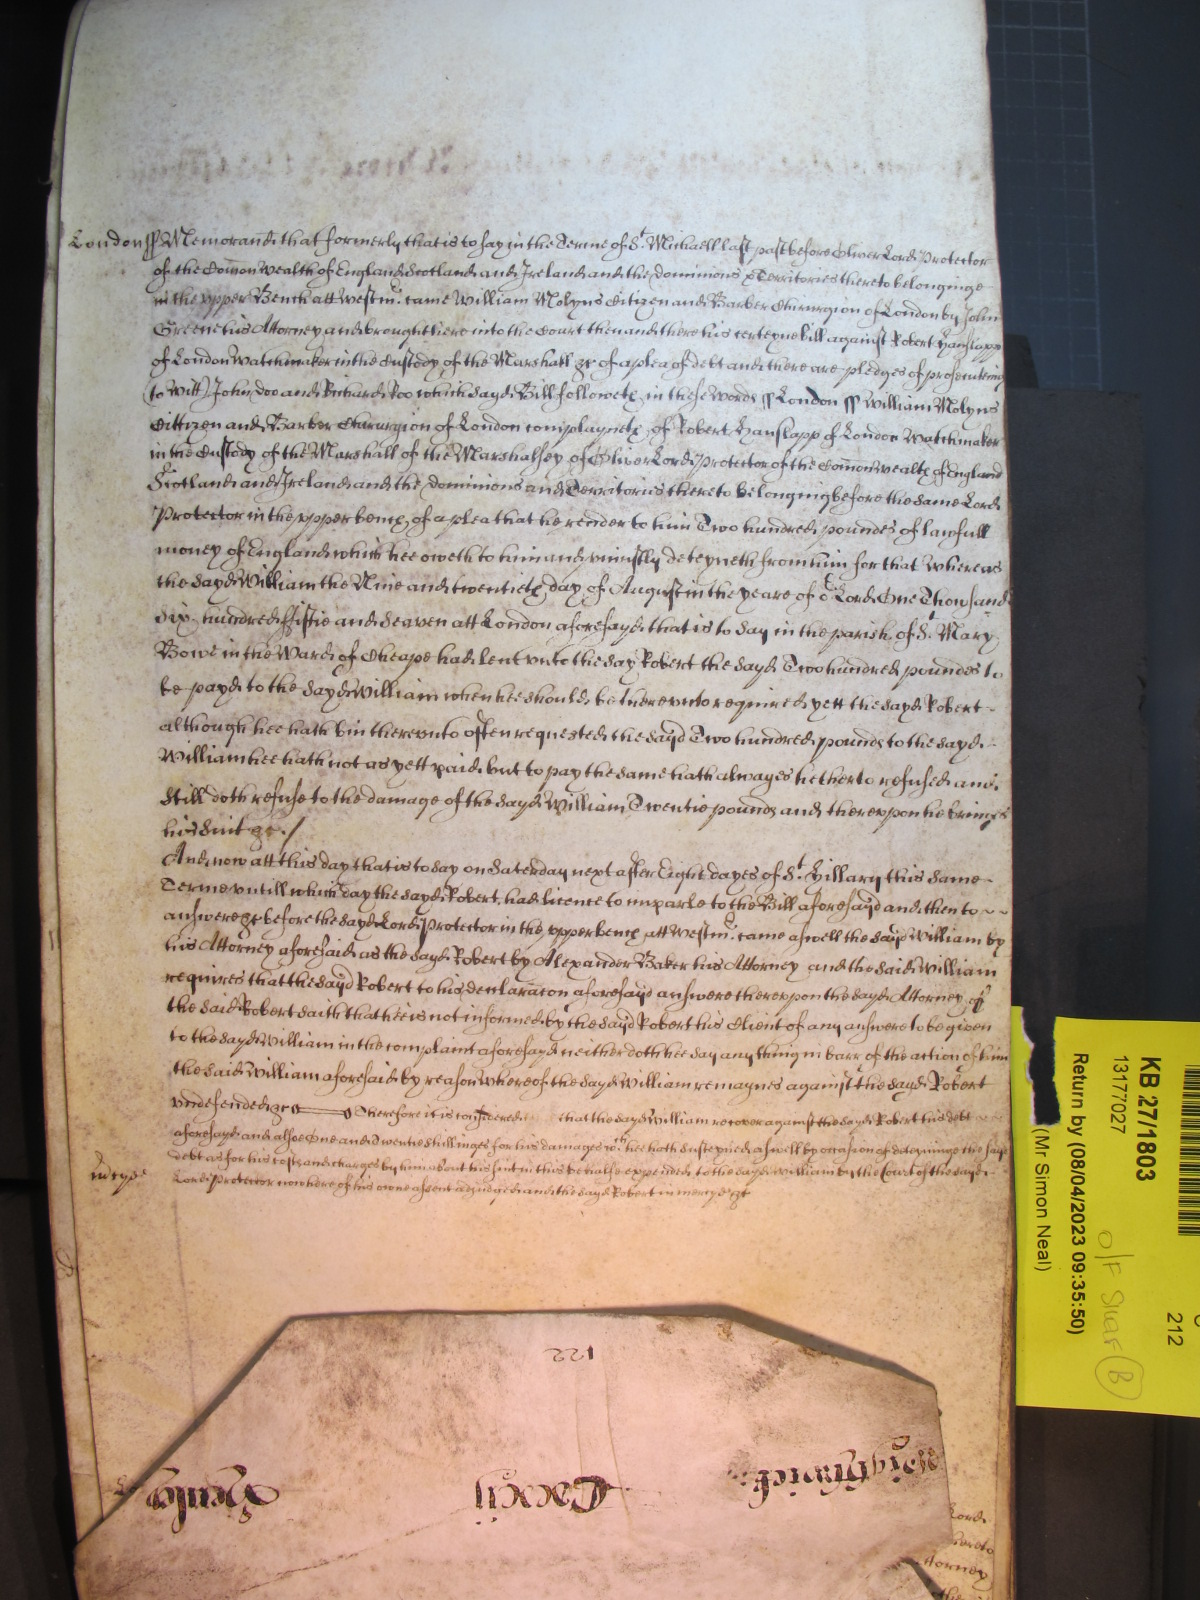 London ss Memorand that formerly that is to say in the Terme of St. Michaell last past before Oliver Lord Protector
of the Comon Wealth of England Scotland and Ireland and the dominions & Territories thereto belonginge
in the vpper Bench att Westmr. came William Molyns Citizen and Barber Chirurgion of London by John
Greene his Attorney and brought here into the Court then and there his certeyne bill against Robert Hanslapp
of London Watchmaker in the Custody of the Marshall &c of a plea of debt and there are pledges of prosecuting
(to Witt) John doo and Richard Roo which sayd Bill followeth in these words ss London ss William Molyns
Cittizen and Barber Chirurgion of London complayneth of Robert Hanslapp of London Watchmaker
in the Custody of the Marshall of the Marshalsey of Oliver Lord Protector of the Comon Wealth of England
Scotland and Ireland and the dominions and Territories thereto belonging before the same Lord
Protector in the vpper bench of a plea that he render to him Two hundred poundes of lawfull
money of England which hee oweth to him and uniustly deteyneth from him for that Whereas
the sayd William the Nine and twentieth day of August in the yeare of or Lord One Thowsand
Six hundred fiftie and Seaven att London aforesayd that is to say in the parish of S. Mary
Bowe in the Ward of Cheape had lent vnto the say Robert the sayd Two hundred poundes to
be payd to the sayd William when hee should be therevnto required yett the sayd Robert
although hee hath bin therevnto often requested the sayd Two hundred pounds to the sayd
William hee hath not as yett paid but to pay the same hath alwayes hetherto refused and
Still doth refuse to the damage of the sayd William Twentie pounds and therevpon he brings
his suit &c./
And now att this day that is to say on Saturday next after Eight dayes of St. Hillary this same
Terme vntill which day the sayd Robert had licence to imparle to the Bill aforesayd and then to
answere &c before the sayd Lord Protector in the vpper bench att Westmr. came aswell the sayd William by
his Attorney aforesaid as the sayd Robert by Alexander Baker his Attorney and the said William
requires that the sayd Robert to his declaracon aforesayd answere therevpon the sayd Attorney of
the said Robert saith that he is not informed by the sayd Robert his Client of any answere to be given
to the sayd William in the complaint aforesayd neither doth hee say any thing in barr of the action of him
the said William aforesaid by reason whereof the sayd William remaynes against the sayd Robert
vndefended &c Therefore it is considered that the sayd William recover against the sayd Robert his debt
aforesayd and alsoe One and Twentie shillinges for his damages wch hee hath susteyned aswell by occasion of deteyninge the sayd
debt as for his costs and charges by him about his sut in this behalfe expended to the sayd William by the Court of the sayd
Lord Protector now here of his owne assent adjudged and the sayd Robert in mercy &c
122
Henley
Ccxcij
Wightwick
Lord
thereto
Attorney
KB 27/1803
13177027
Return by (08/04/2023 09:35:50)
(Mr Simon Neal)
O/F Shar (B)
212